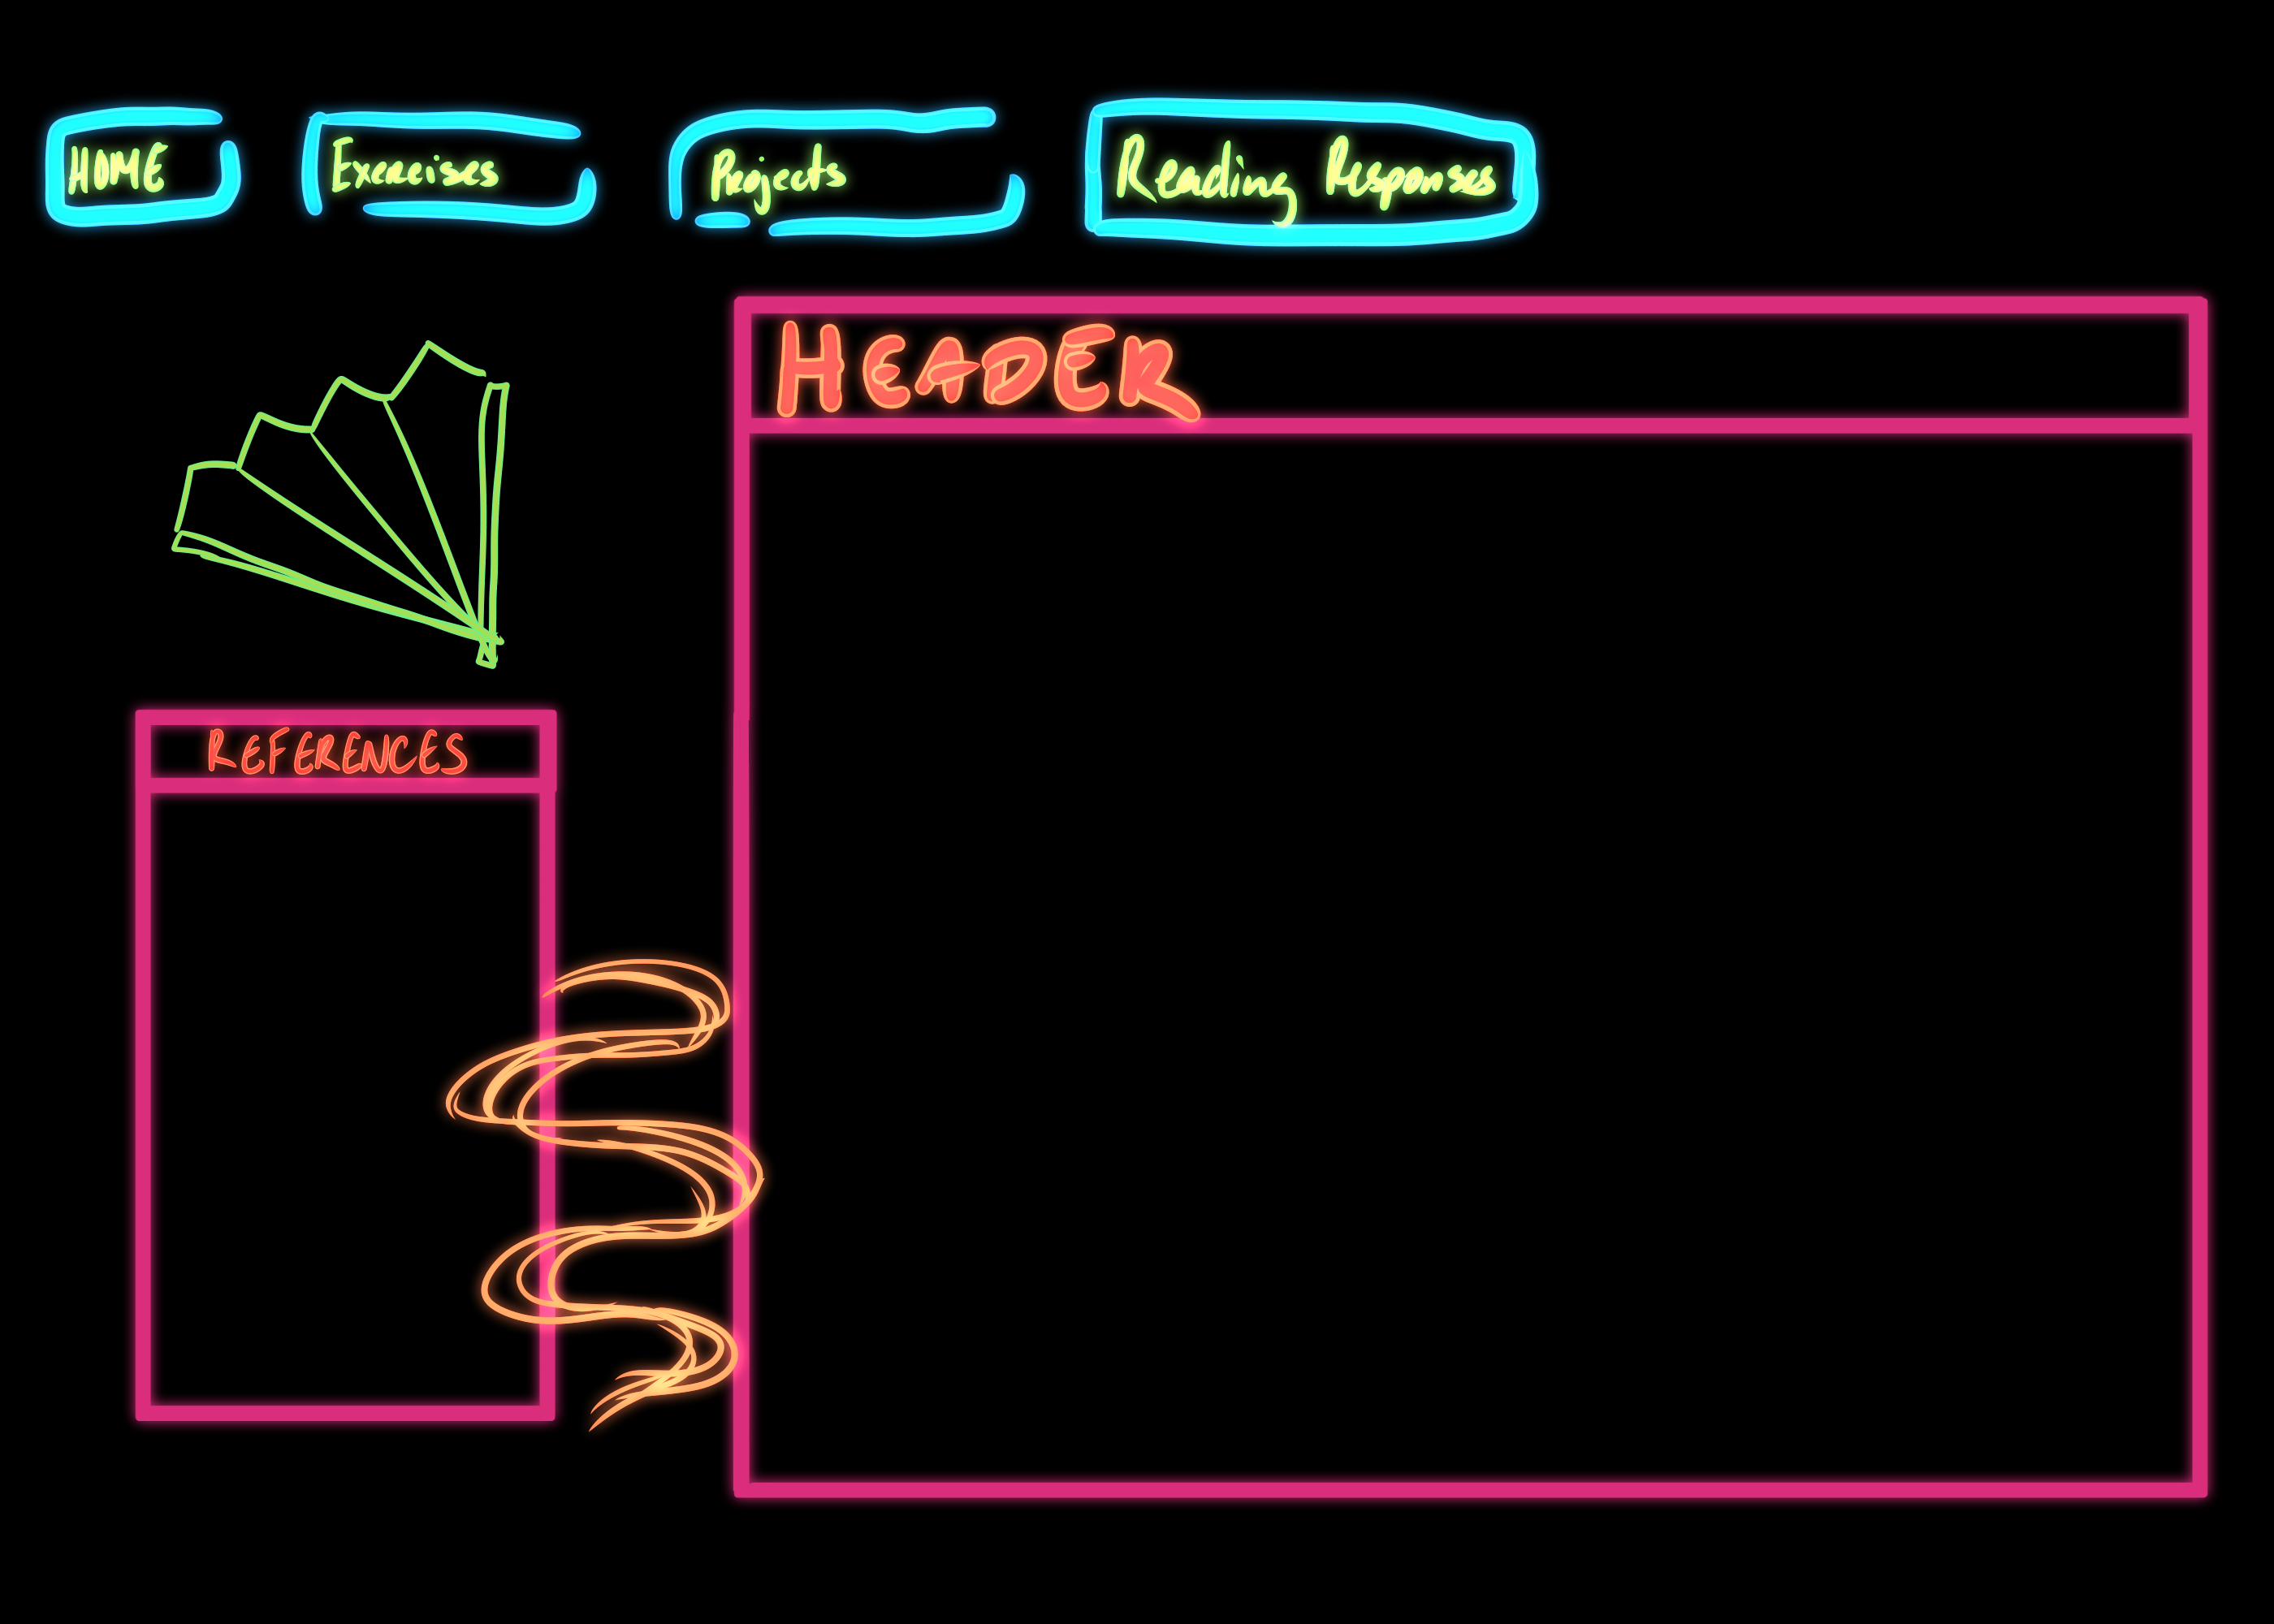 HOME Exercises Projects Reading Responses
HEADER
REFERENCES